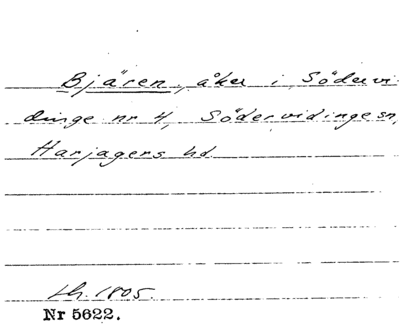 Bjären, åker i Södervi-
dinge nr 4, Södervidinge sn,
Harjagers hd.
Lh. 1805.
Nr 5622.